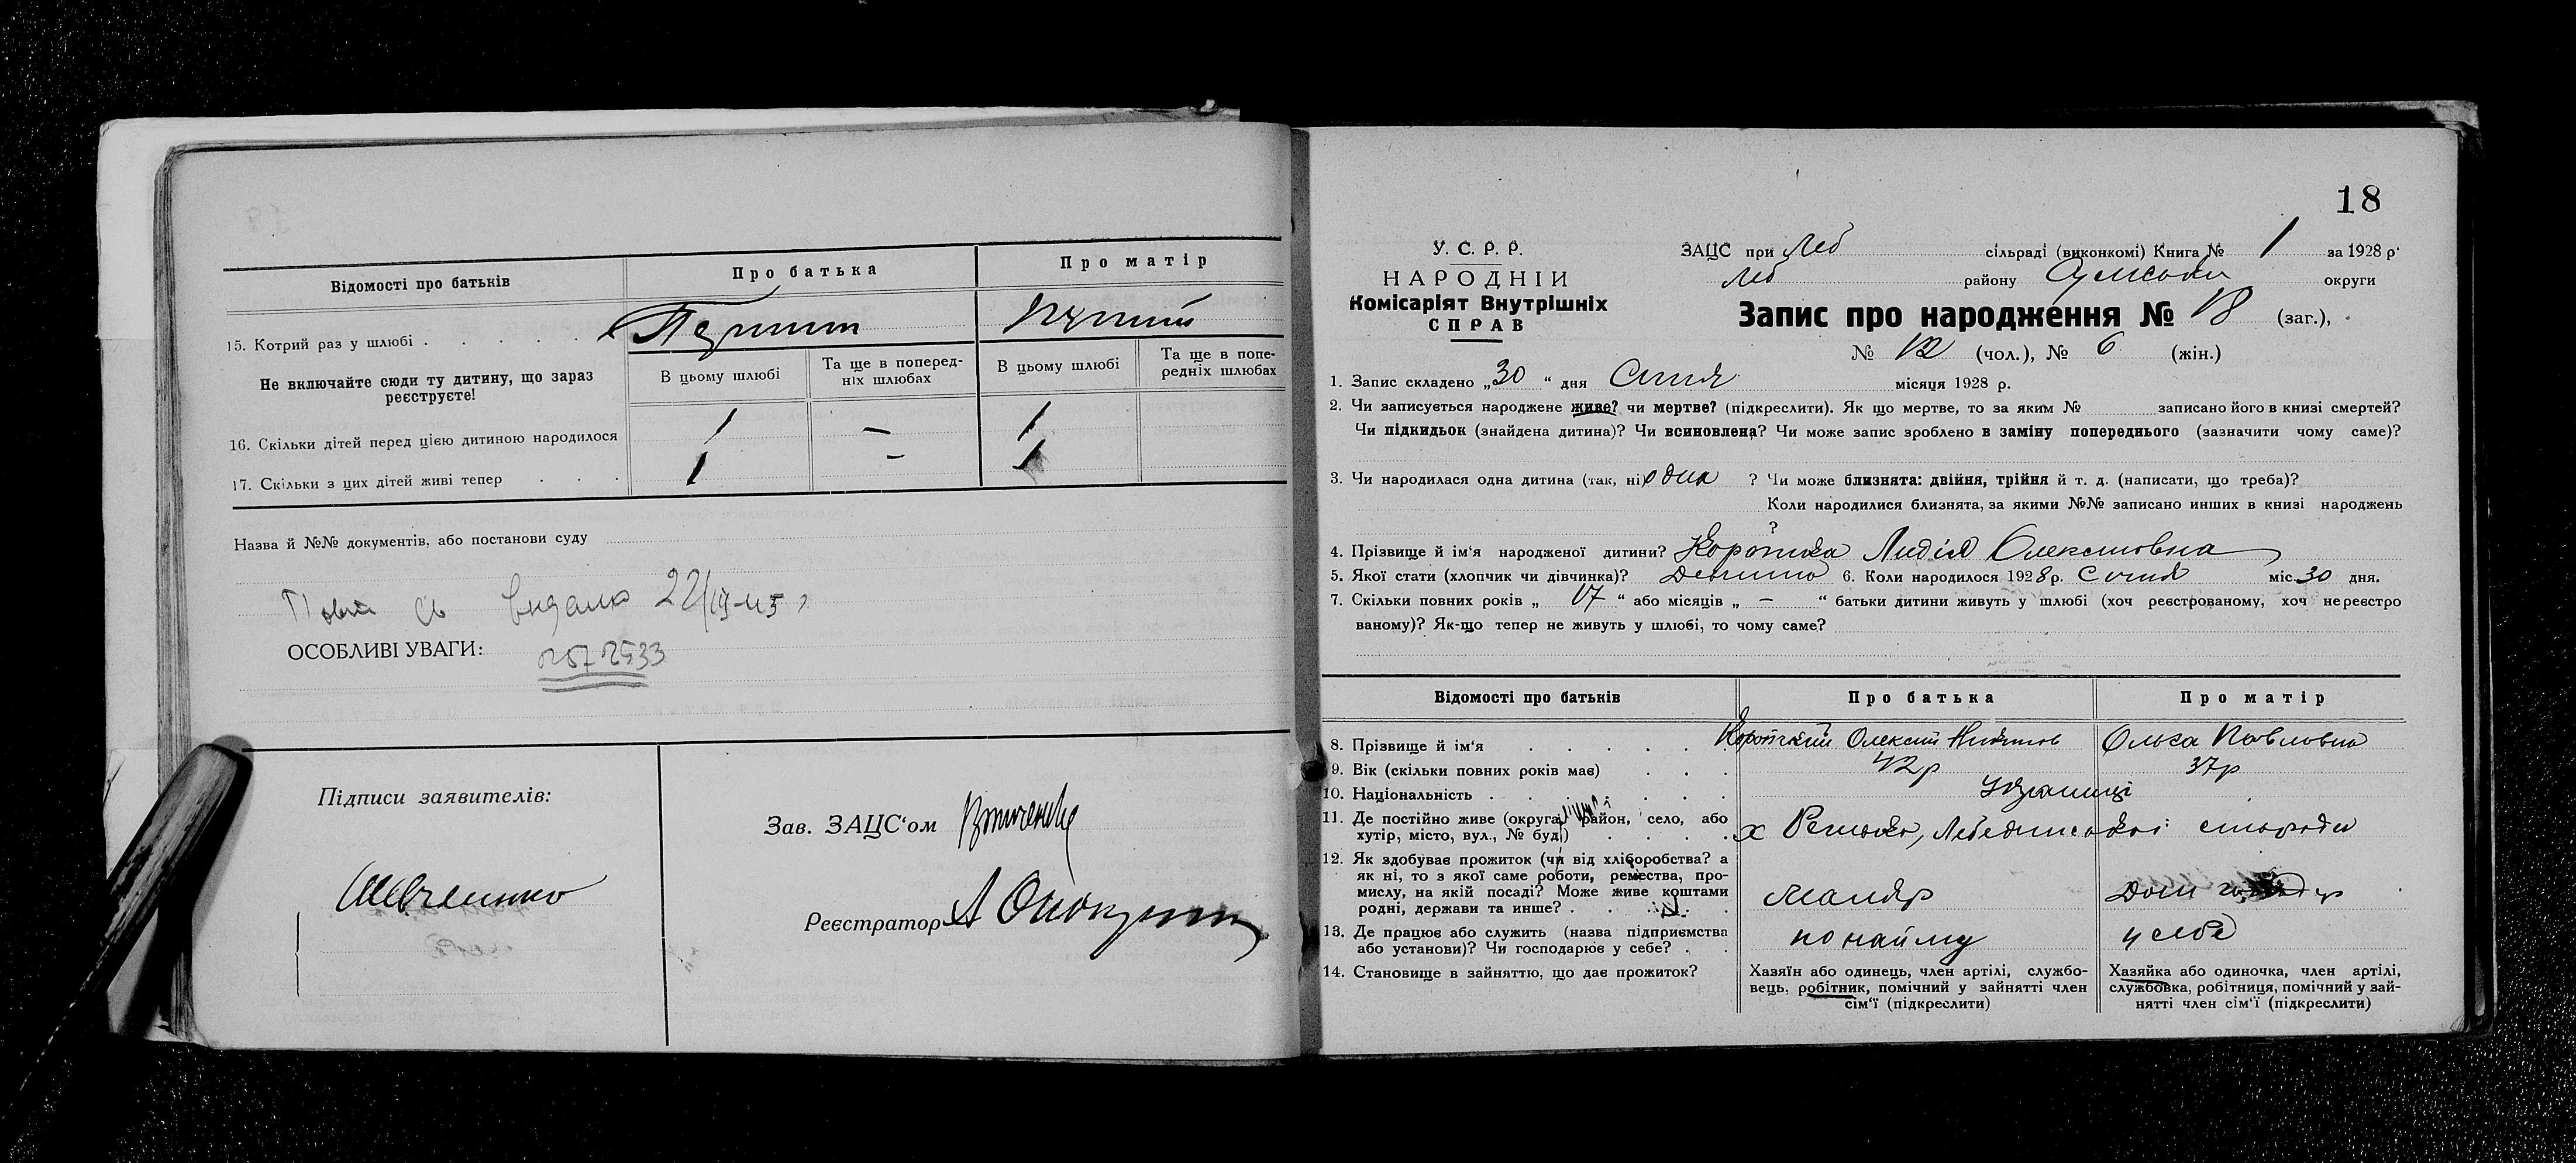 Відомості про батьків
Про батька
Про матір
15. Котрий раз у шлюбі
Перший
Перший
Не включайте сюди ту дитину, що зараз реєструєте!
В цьому шлюбі
Та ще в попередніх шлюбах
В цьому шлюбі
Та ще в попередніх шлюбах
16. Скільки дітей перед цією дитиною народилося
1 — 1
17. Скільки з цих дітей живі тепер
1 - 1
Назва й №№ документів, або постанови суду
видано 22/
ОСОБЛИВІ УВАГИ:
Підписи заявителів:
Шевченко
Зав. ЗАЦС'ом
Реєстратор А
18
У. С. Р. Р.
НАРОДНІЙ
Комісаріят Внутрішніх
СПРАВ
ЗАЦС при Леб сільраді (виконкомі) Книга № 1 за 1928 р.
Леб району Сумської округи
Запис про народження № 18 (заг.),
№ 12 (чол.), № 6 (жін.)
1. Запис складено „30" дня Січня місяця 1928 р.
2. Чи записується народжене живе? чи мертве? (підкреслити). Як що мертве, то за яким № записано його в книзі смертей?
Чи підкидьок (знайдена дитина)? Чи всиновлена? Чи може запис зроблено в заміну попереднього (зазначити чому саме)?
3. Чи народилася одна дитина (так, ні) одна ? Чи може близнята: двійня, трійня й т. д. (написати, що треба)?
Коли народилися близнята, за якими №№ записано инших в книзі народжень
?
4. Прізвище й ім'я народженої дитини? Коротка Лидія Олексіовна
5. Якої стати (хлопчик чи дівчинка)? Дівчина 6. Коли народилося 1928 р. Січня міс. 30 дня.
7. Скільки повних років „ 17 " або місяців „ — " батьки дитини живуть у шлюбі (хоч реєстрованому, хоч нереєстро
ваному)? Як-що тепер не живуть у шлюбі, то чому саме?
Відомості про батьків
Про батька
Про матір
8. Прізвище й ім'я
Короткий Олексій
Ольга Павловна
9. Вік (скільки повних років має)
42р
37р
10. Національність
Українці
11. Де постійно живе (округа, район, село, або
хутір, місто, вул., № буд.)
х
12. Як здобуває прожиток (чи від хліборобства? а
як ні, то з якої саме роботи, ремества, про-
мислу, на якій посаді? Може живе коштами
родні, держави та инше?
маляр
Дом
13. Де працює або служить (назва підприємства
або установи)? Чи господарює у себе?
по найму
у себе
14. Становище в зайняттю, що дає прожиток?
Хазяїн або одинець, член артілі, службо-
вець, робітник, помічний у зайнятті член
сім'ї (підкреслити)
Хазяйка або одиночка, член артілі,
службовка, робітниця, помічний у зай-
нятті член сім'ї (підкреслити)